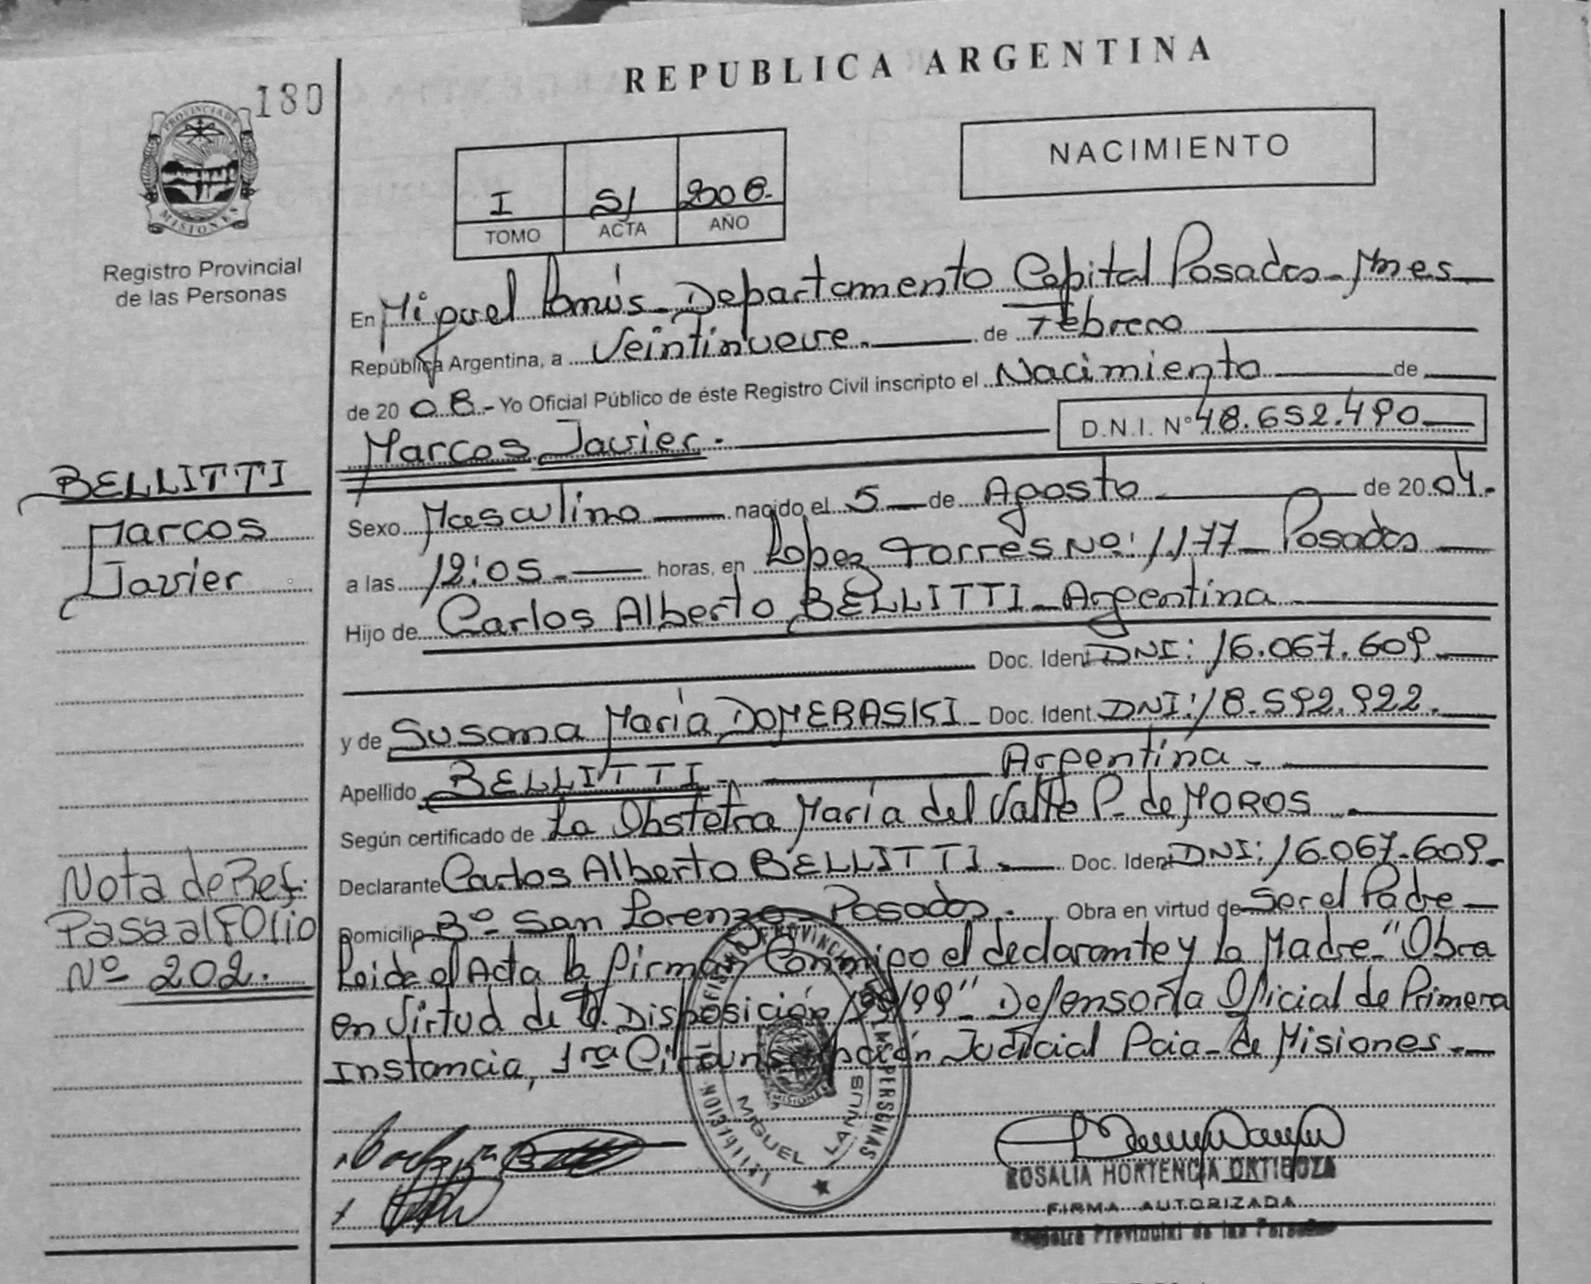 REPUBLICA ARGENTINA
180
PROVINCIA DE
MISIONES
Registro Provincial
de las Personas
NACIMIENTO
I 51 2008.
TOMO ACTA AÑO
En Miguel Lanús - Departamento Capital Posadas - Mnes
República Argentina, a Veintinueve. de Febrero
de 20 08.- Yo Oficial Público de éste Registro Civil inscripto el Nacimiento de
Marcos Javier. D.N.I. Nº 48.652.490
BELLITTI
Marcos
Javier
Sexo Masculino nacido el 5 de Agosto de 20 04.
a las 12:05. horas, en Lopez Torres Nº: 1.177 - Posadas
Hijo de Carlos Alberto BELLITTI - Argentina
Doc. Ident DNI: 16.067.609
y de Susana María DOMERASKI - Doc. Ident. DNI: 18.592.922.
Apellido BELLITTI - Argentina -
Según certificado de La Obstetra María del Valle P. de MOROS.
Declarante Carlos Alberto BELLITTI. Doc. Ident DNI: 16.067.609.
Domicilio Bº San Lorenzo - Posadas. Obra en virtud de Ser el Padre
Nota de Ref:
Pasa al Folio
Nº 202.
Leida el Acta la firman Conmigo el declarante y la Madre - "Obra
en Virtud de la Disposición /99" Defensoría Oficial de Primera
Instancia, 1ra Circunscripción Judicial Pcia - de Misiones.-
REGISTRO PROVINCIAL DE LAS PERSONAS
DELEGACION
MISIONES
MIGUEL LANUS
ROSALIA HORTENCIA ORTIGOZA
FIRMA AUTORIZADA
Registro Provincial de las Personas